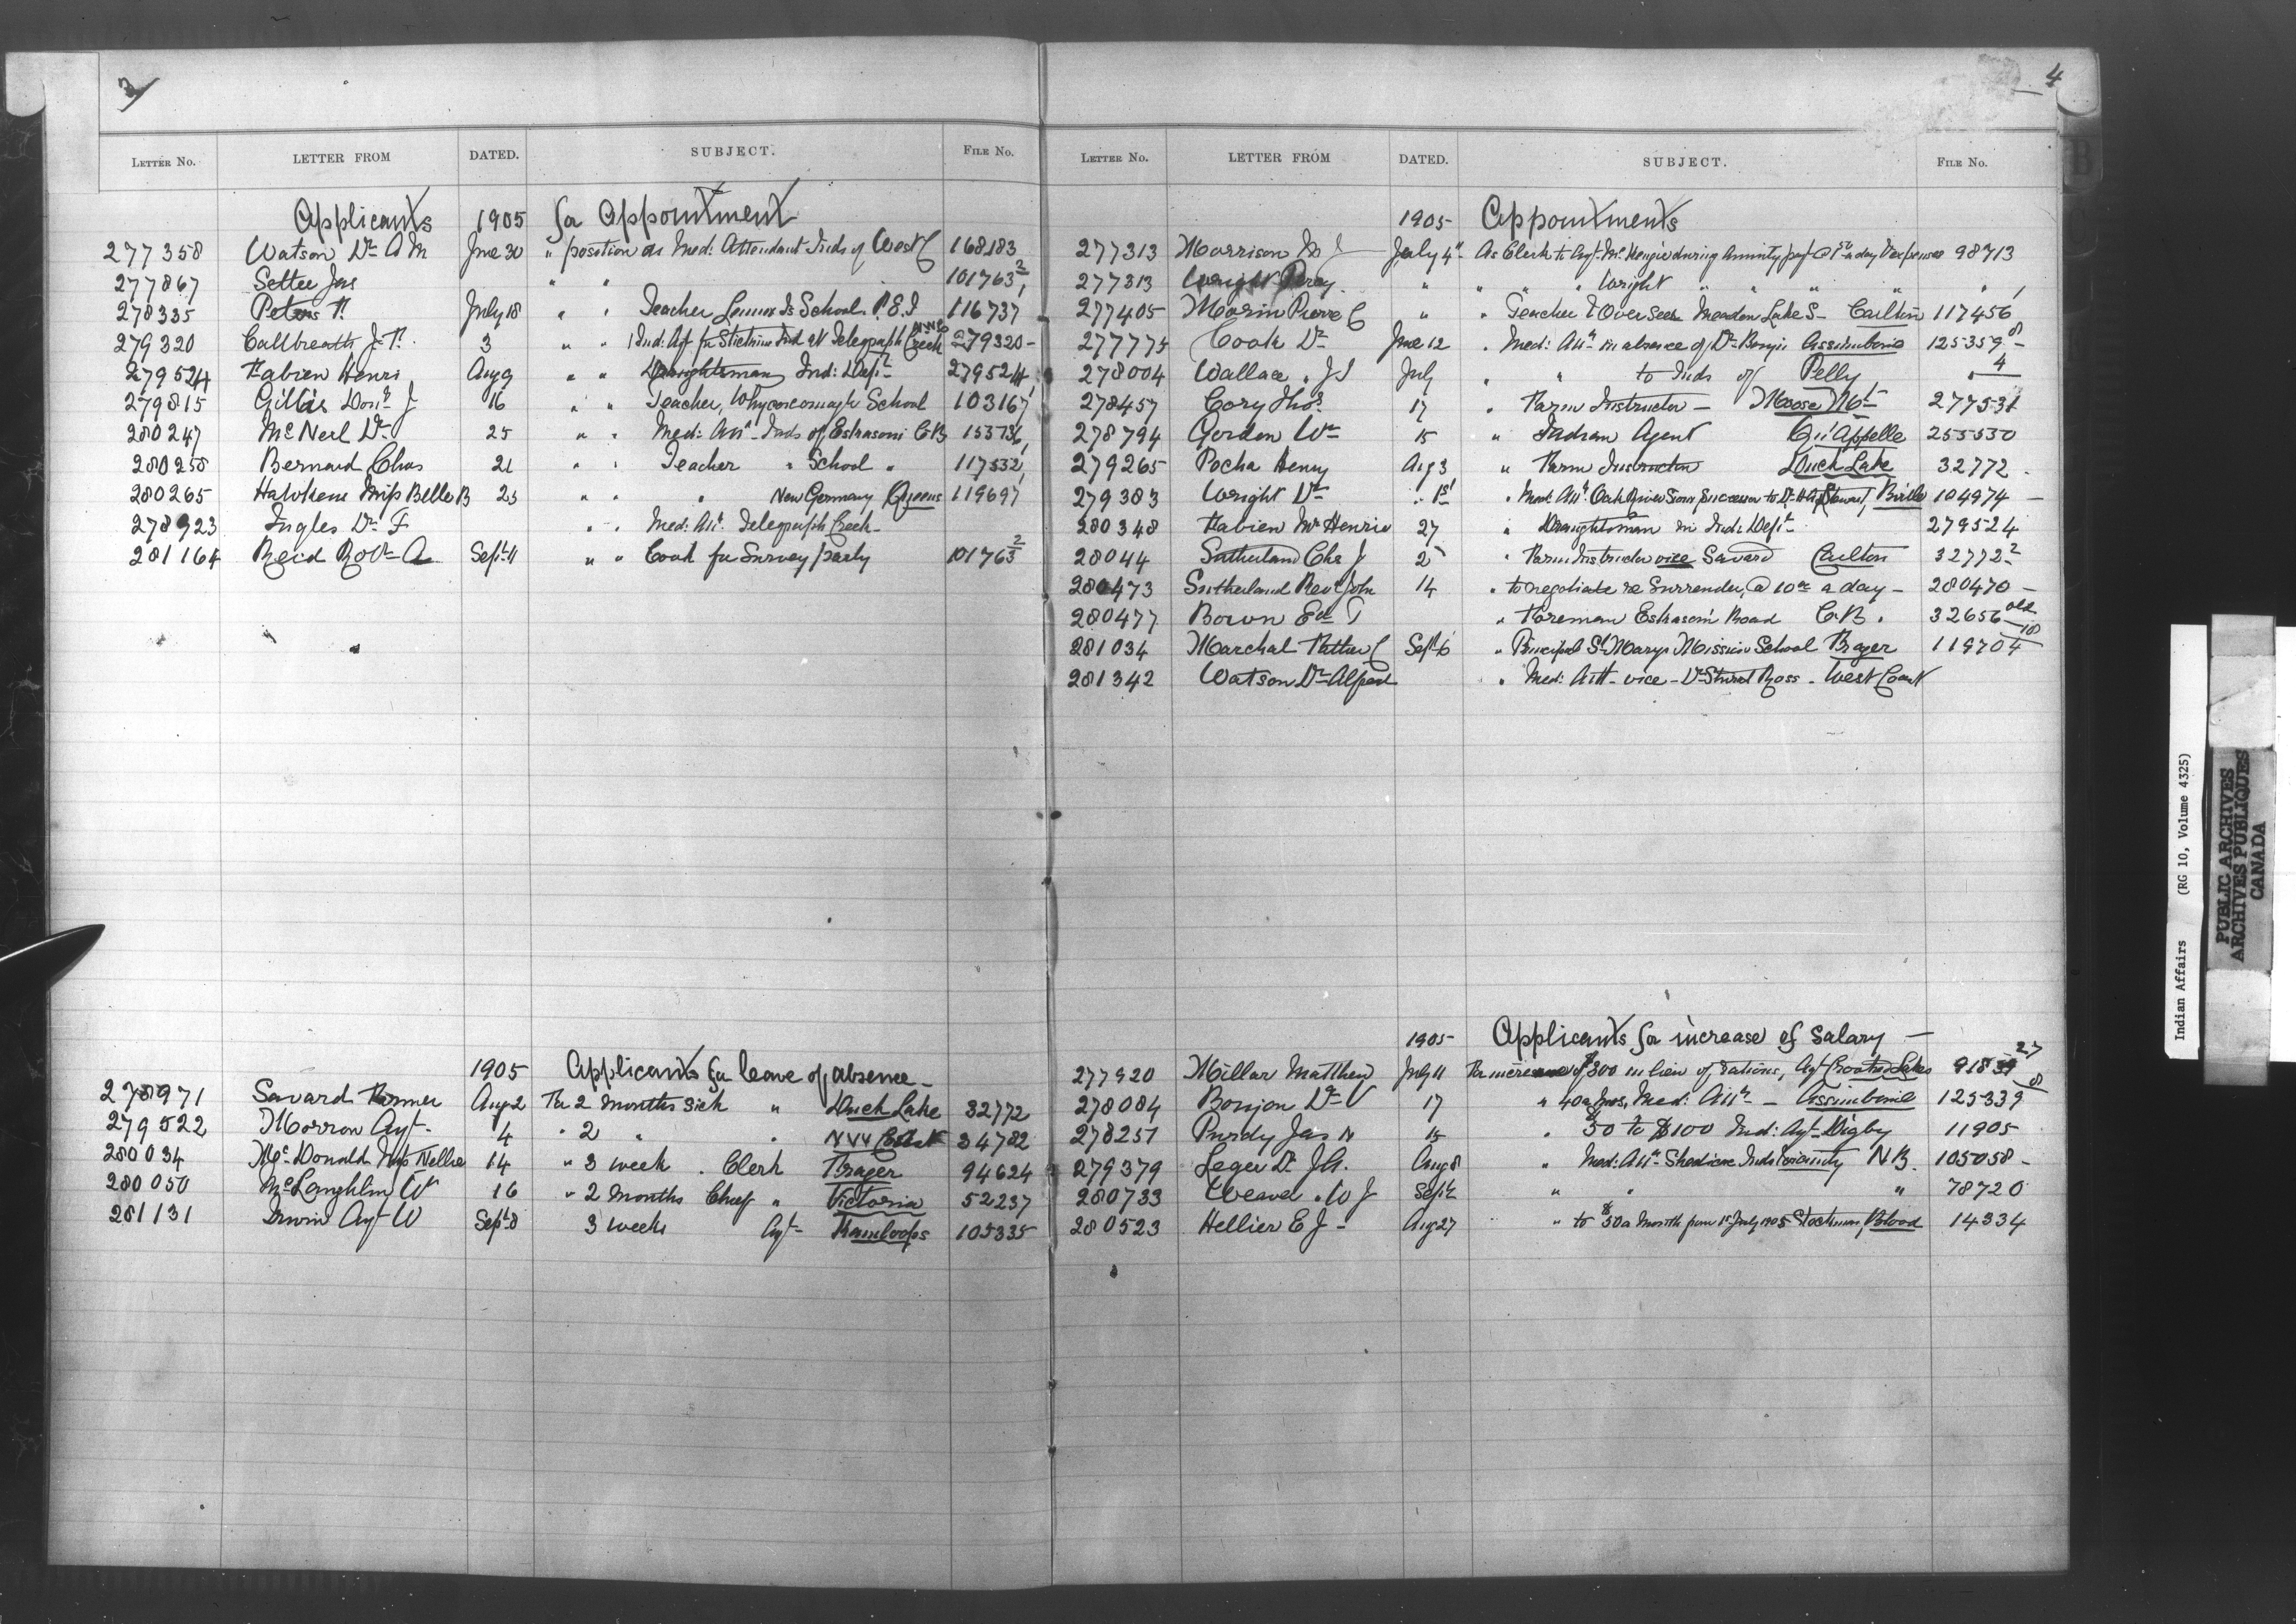 3
LETTER No. LETTER FROM DATED. SUBJECT. FILE No.
Applicants 1905 for Appointment
277358 Watson Dr A M June 30 " position as Med: Attendant Inds of West C 168183
277867 Settee Jas " " 101763 2
278335 Peters P. July 18 " " Teacher Lennox Is School. P.E.I 116737
279320 Callbreath J. F. 3 " " Ind: Agt for Stickine Ind at Telegraph Creek 279320 -
279524 Fabien Henri Aug 9 " " Draughtsman Ind: Dept 279524
279815 Gillis Don J 16 " " Teacher, Whycocomagh School 103167
280247 McNeil Dr 25 " " Med: Att Inds of Eskasoni C.B. 153736
280258 Bernard Chas 21 " " Teacher " School " 117532
280265 Hawkens Miss Belle B 23 " " " New Germany Queens 119697
278923 Ingles Dr F " " Med: Att. Telegraph Creek -
281164 Reid Robt A Sept 11 " " Cook for Survey party 101763 2
1905 Applicants for leave of absence -
278971 Savard Farmer Aug 2 For 2 months sick " Duck Lake 32772
279522 Morrow Agt - 4 " 2 " " N W Coast 34782
280034 McDonald Miss Nellie 14 " 3 week . Clerk Fraser 94624
280050 McLaughlin W 16 " 2 months Chief " Victoria 52237
281131 Irwin Agt W Sept 8 3 weeks Agt - Kamloops 105335
4
LETTER No. LETTER FROM DATED. SUBJECT. FILE No.
1905 - Appointments
277313 Morrison J July 4 As Clerk to Agt McKenzie during Annuity pay a day & expenses 98713
277313 Wright Percy " " " " Wright " " " " "
277405 Morin Pierre C " " Teacher & Overseer Meadow Lake S - Carlton 117456
277775 Cook Dr June 12 " Med: Att in absence of Dr Assiniboine 125359 8 -
278004 Wallace . J S July " " to Inds of Pelly " 4
278457 Cory Thos. 17 " Farm Instructor - Moose Mt 277531
278794 Gordon Wm 15 " Indian Agent Qu'Appelle 255530
279265 Pocha Henry Aug 3 " Farm Instructor Duck Lake 32772 .
279383 Wright Dr " 1st " Med: Att. Oak River Sioux successor to Dr Stewart, Birtle 104974 -
280348 Fabien Mr Henri 27 " Draughtsman in Ind: Dept 279524
28044 Sutherland Chs J 25 " Farm Instructor vice Savard Carlton 32772 2
280473 Sutherland Revd John 14 " to negotiate re Surrender, @ 10 00 a day - 280470 -
280477 Bown Ed T " Foreman Eskasoni Road C.B. 32656 old
281034 Marchal Father C Sept 6 " Principal St Marys Mission School Fraser 119704 10
281342 Watson Dr Alfred " Med: Att - vice - Dr Ross - West Coast
1905 - Applicants for increase of salary -
277920 Millar Matthew July 11 For increase of $300 in lieu of rations, Agt Crooked Lakes 91839 27
278084 Bonjon Dr V 17 " 40 a mos, Med: Att - Assiniboine 125339 8
278251 Purdy Jas H 15 " 50 to $100 Ind: Agt - Digby 11905
279379 Leger Dr J A. Aug 8 " Med: Att - Shediac Inds vicinity N.B. 105058 -
280733 Weaver . W J Sept 2 " " " 78720
280523 Hellier E J - Aug 27 " to $50 a month from 1st July 1905 Stockman, Blood 14334
Indian Affairs (RG 10, Volume 4325)
PUBLIC ARCHIVES
ARCHIVES PUBLIQUES
CANADA